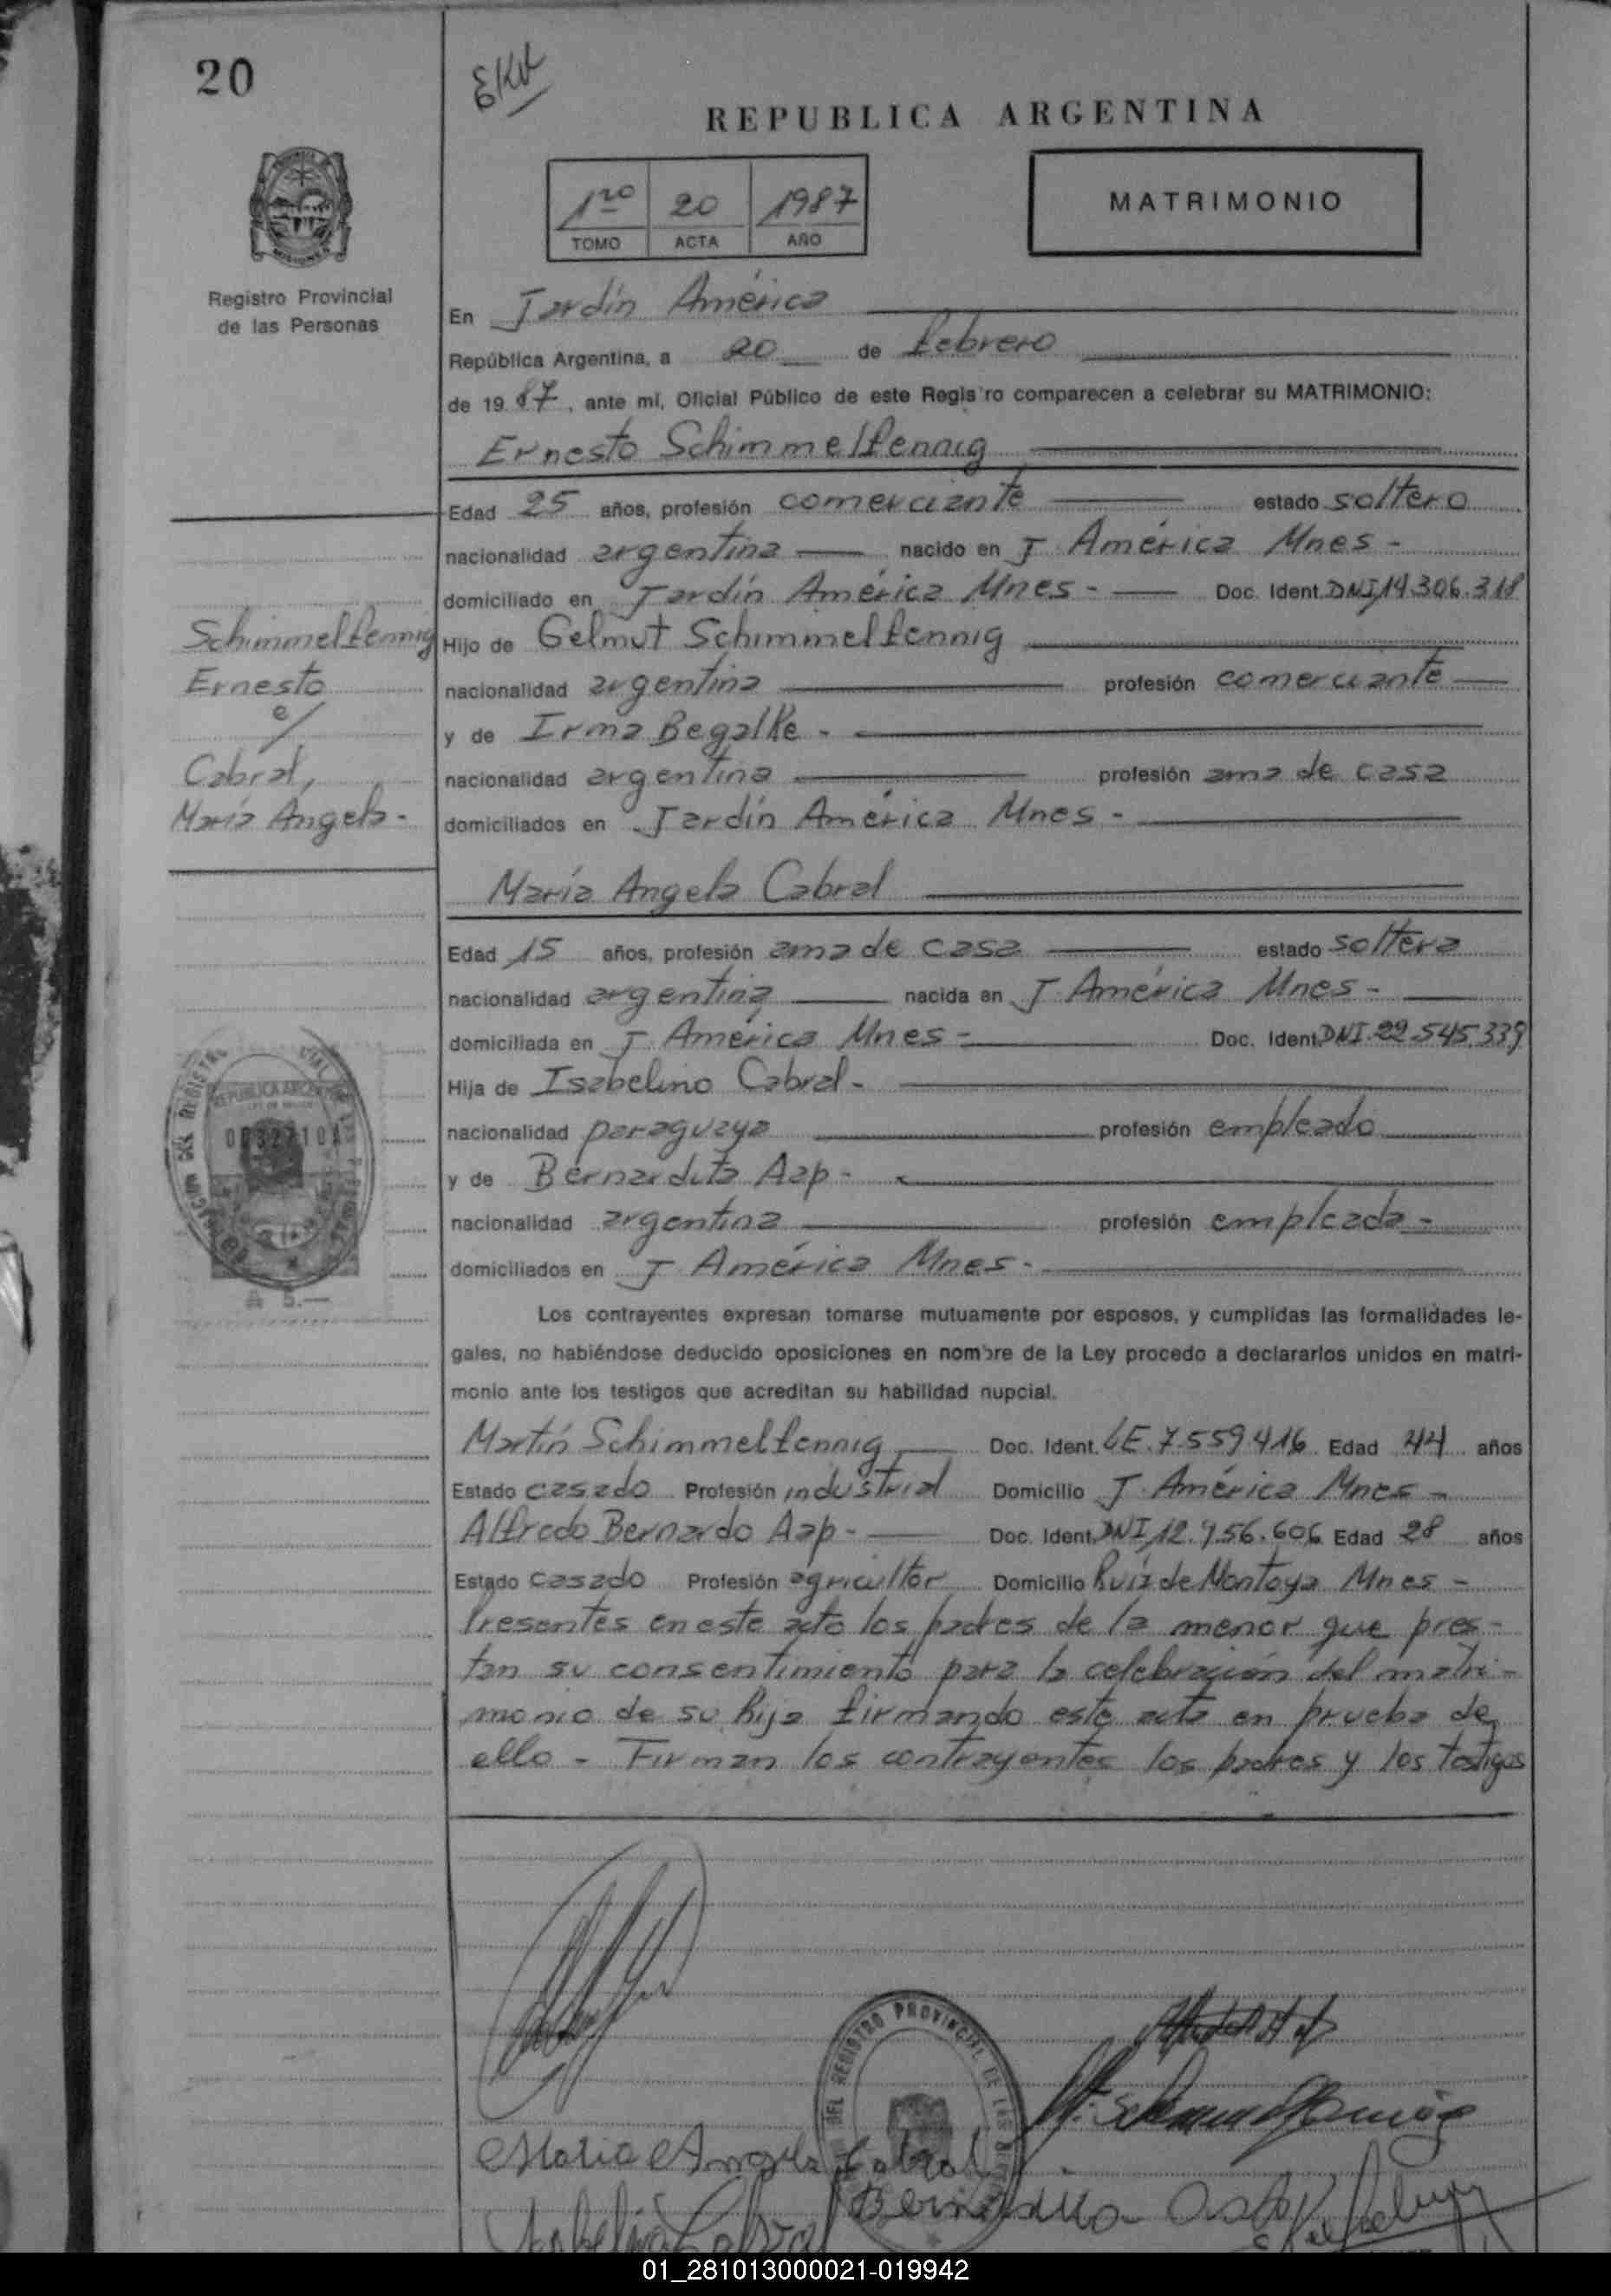 20
EKV
REPUBLICA ARGENTINA
1ro 20 1987
TOMO ACTA AÑO
MATRIMONIO
Registro Provincial
de las Personas
En Jardín América
República Argentina, a 20 de febrero
de 1987, ante mí, Oficial Público de este Regis ro comparecen a celebrar su MATRIMONIO:
Ernesto Schimmelfennig
Edad 25 años, profesión comerciante estado soltero
nacionalidad argentina nacido en J América Mnes -
domiciliado en Jardín América Mnes - Doc. Ident. DNI 14.306.318
Schimmelfennig
Ernesto
c/
Cabral,
María Angela -
Hijo de Gelmut Schimmelfennig
nacionalidad argentina profesión comerciante
y de Irma Begalke -
nacionalidad argentina profesión ama de casa
domiciliados en Jardín América Mnes -
María Angela Cabral
Edad 15 años, profesión ama de casa estado soltera
nacionalidad argentina nacida en J. América Mnes -
domiciliada en J. América Mnes - Doc. Ident. DNI. 22.545.339
Hija de Isabelino Cabral -
nacionalidad paraguaya profesión empleado
y de Bernardita Aap -
nacionalidad argentina profesión empleada -
domiciliados en J América Mnes -
REPUBLICA ARGENTINA
A 5.—
Los contrayentes expresan tomarse mutuamente por esposos, y cumplidas las formalidades le-
gales, no habiéndose deducido oposiciones en nombre de la Ley procedo a declararlos unidos en matri-
monio ante los testigos que acreditan su habilidad nupcial.
Martín Schimmelfennig Doc. Ident. LE. 7.559.416 Edad 44 años
Estado casado Profesión industrial Domicilio J. América Mnes -
Alfredo Bernardo Aap - Doc. Ident. DNI 12.956.606 Edad 28 años
Estado casado Profesión agricultor Domicilio Ruiz de Montoya Mnes -
Presentes en este acto los padres de la menor que pres-
tan su consentimiento para la celebración del matri-
monio de su hija firmando este acta en prueba de
ello - Firman los contrayentes los padres y los testigos
DEL REGISTRO PROVINCIAL DE LAS
M. Schimmelfennig
Maria Angela Cabral
Bernardita
Isabelino Cabral
01_281013000021-019942